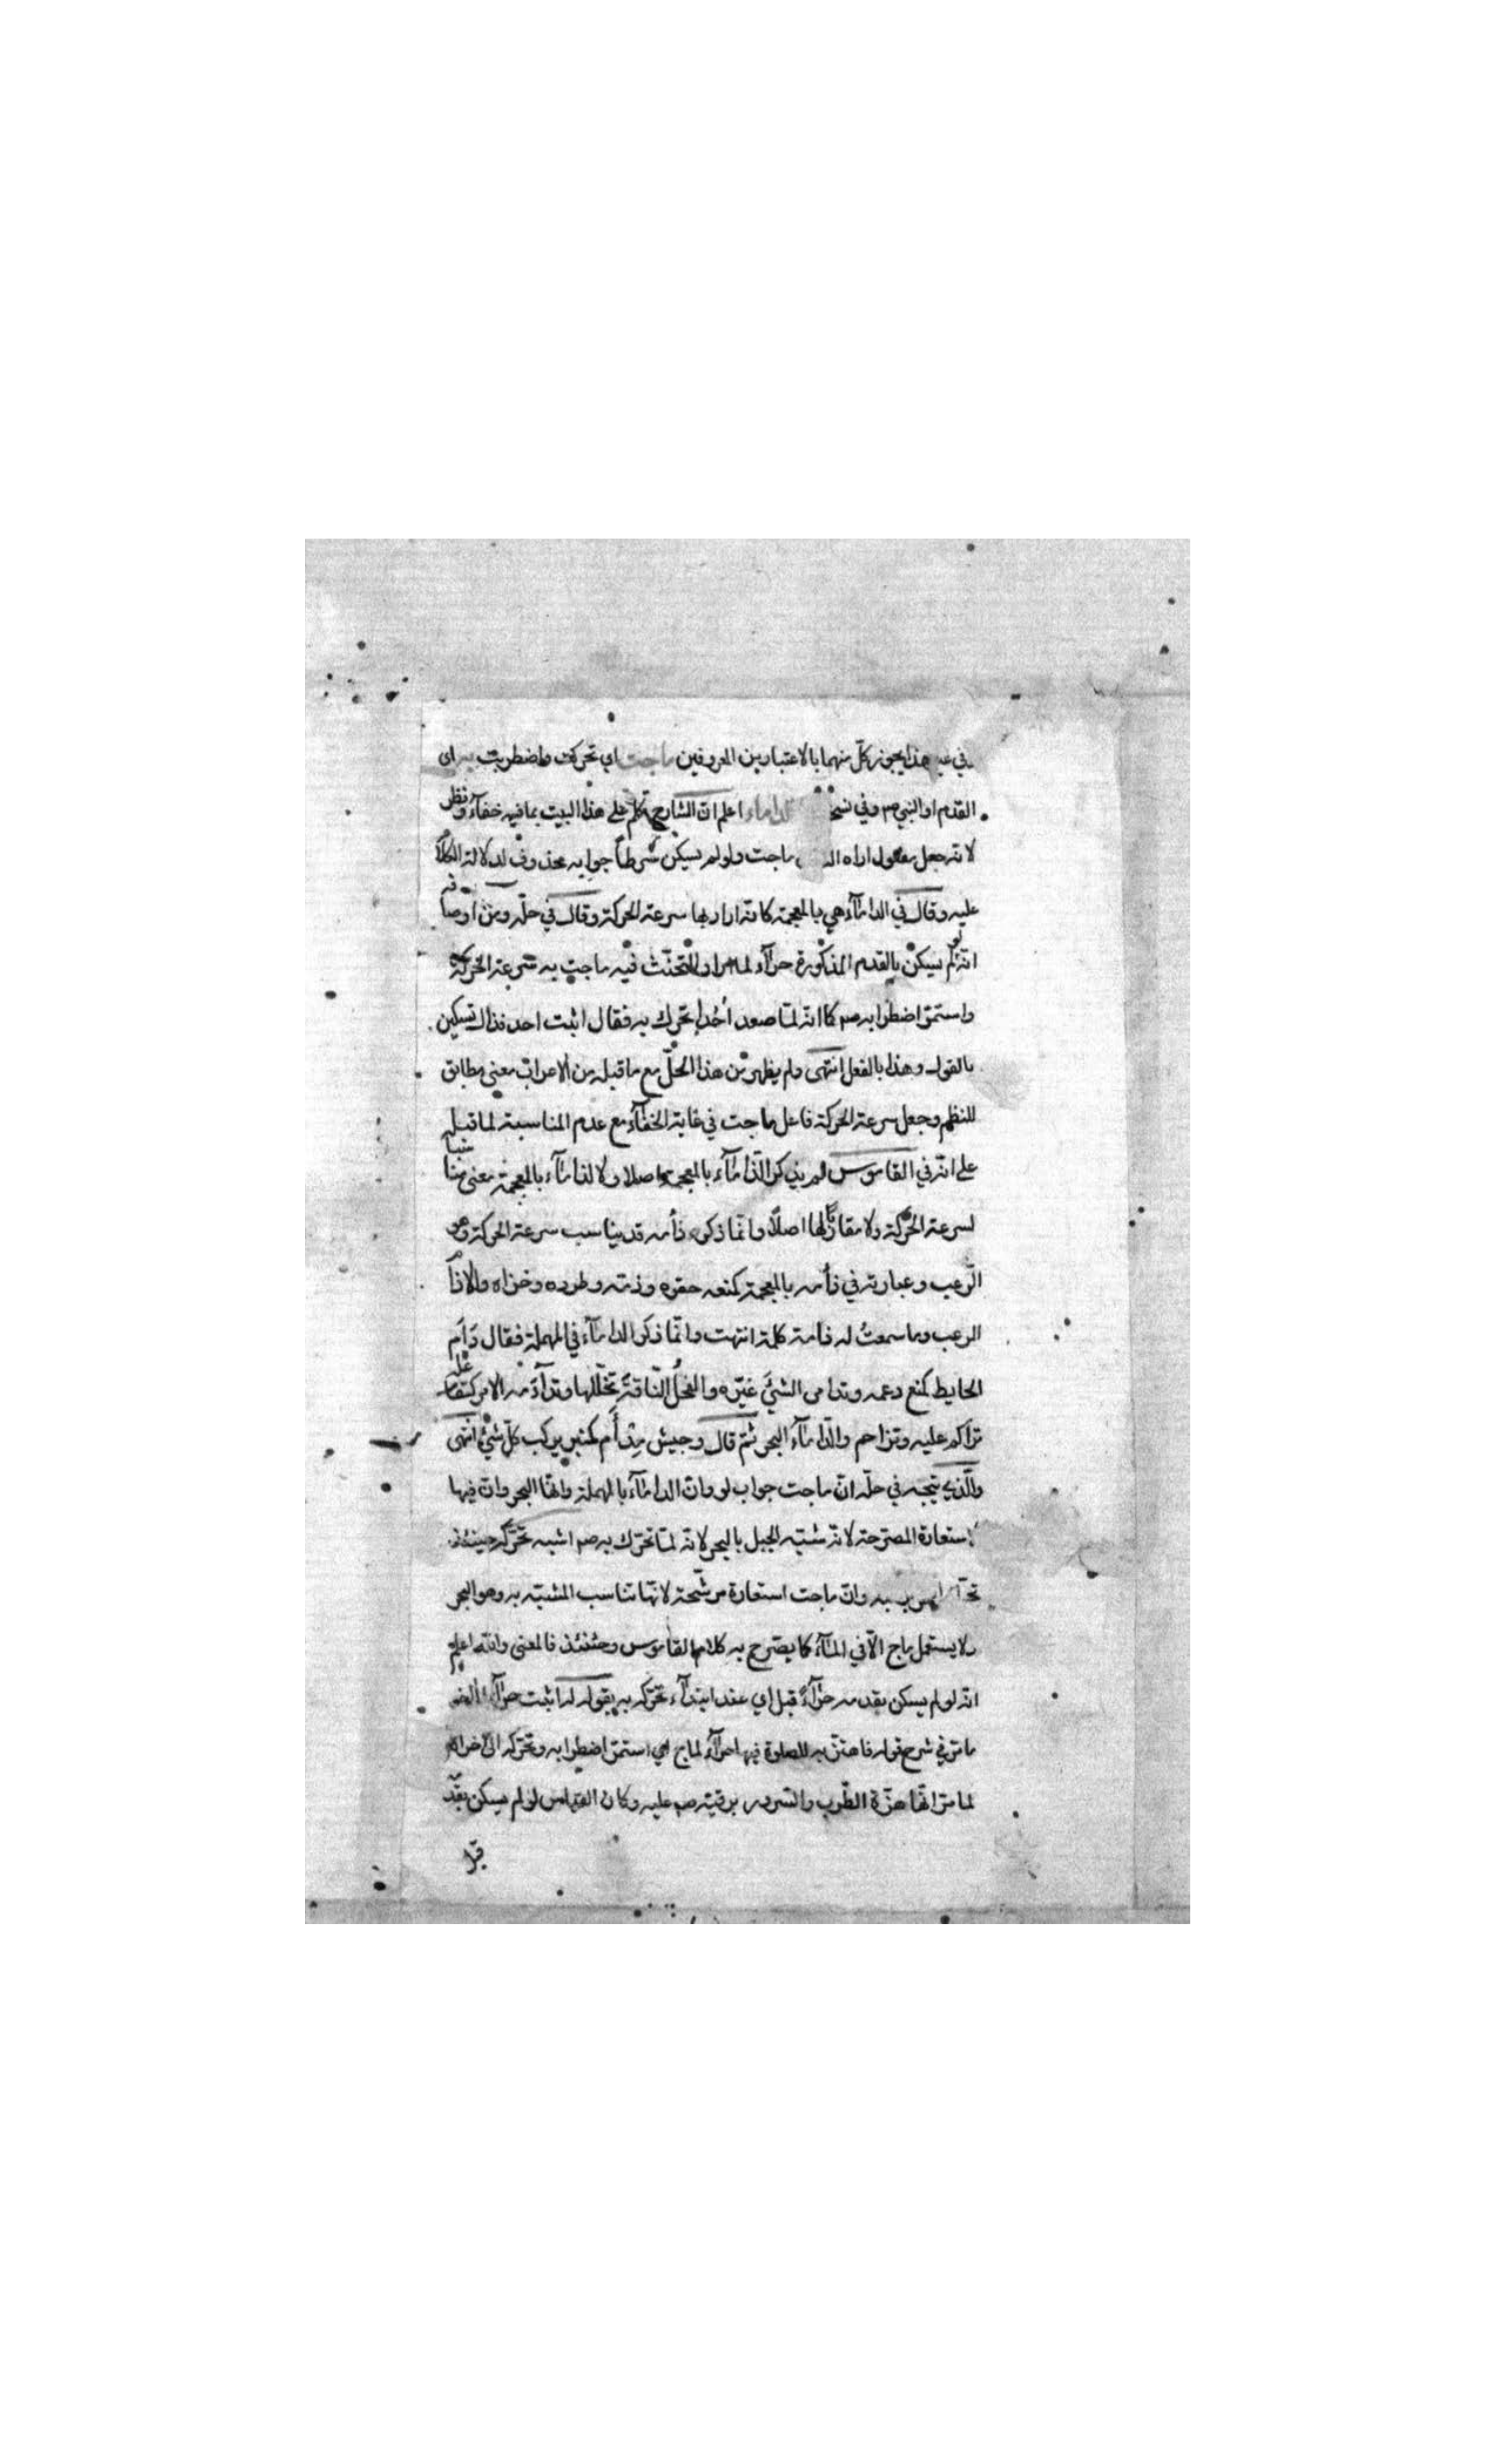 في هذا يجوز كل منهما بالاعتبارين المعروفين ماجت اي تحركت واضطربت به اى
القدم او النبي صم وفي نسخ الداماء اعلم ان الشارح تكلم على هذا البيت بما فيه خفآء ونظر
لانه جعل مفعول اراه ماجت ولو لم يسكن شرطاً جوابه محذوف لدلالة الكلام
عليه وقال في الدامآء هي بالمعجمة كانه اراد بها سرعة الحركة وقال في حله ومن اوصافه
انه لو لم يسكن بالقدم المذكورة حرآء لما اراد التحنث فيه ماجت به سرعة الحركة
واستمر اضطرابه صم كما انه لما صعد أحُدا تحرك به فقال اثبت احد فذاك تسكين
بالقول وهذا بالفعل انتهى ولم يظهر من هذا الحلّ مع ما قبله من الاعراب معنى مطابق
للنظم وجعل سرعة الحركة فاعل ماجت في غاية الخفآء مع عدم المناسبة لما قبله
على انه في القاموس لم يذكر الذامآء بالمعجمة اصلا ولا لذامآء بالمعجمة معنى مناسبا
لسرعة الحركة ولا مقاربًا لها اصلًا وانما ذكر ذأمه قد يناسب سرعة الحركة وهو
الرّعب وعبارته في ذأمه بالمعجمة كمنعه حقره وذمه وطرده وخزاه والاذآم
الرعب وما سمعتُ له ذامة كلمة انتهت وانّما ذكر الدامآء في المهملة فقال دَأم
الحايط كمنع دعمه وتدامى الشيَ غيّره والفحلُ النّاقةَ تجللها وتدأدمه الامر كتفاعله
تراكم عليه وتزاحم والدّامآء البحر ثم قال وجيش مِدْأَم كمنبر يركب كلّ شيْ انتهى
والّذي يتجه في حله ان ماجت جواب لو وان الدامآء بالمهملة وانها البحر وان فيها
استعارة المصرحة لانه شبّه الجبل بالبحر لانه لما تحرك به صم اشبه تحركه حينئذ
به وان ماجت استعارة مرشّحة لانّها تناسب المشبّه به وهو البحر
ولا يستعمل ماج الّا في المآء كما يصرح به كلام القاموس وحينئذ فالمعنى والله اعلم
انه لو لم يسكن بقدمه حرآءً قبل اي عند ابتدآء تحركه به بقوله له اثبت حرآء
ما مر في شرح قوله فاهتز به للصلوة فيها حرآء لماج اي استمر اضطرابه وتحركه الى اخراه
لما مر انها هزة الطّرب والسرور برقيه صم عليه وكان القياس لو لم يسكن بقد